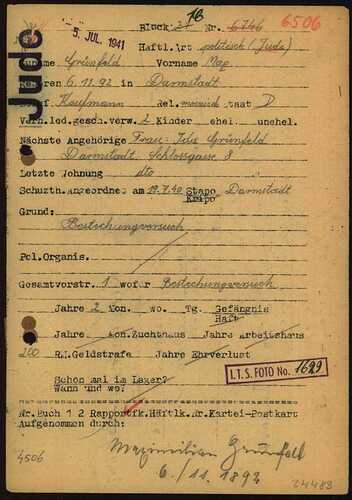 Jude
5. JUL. 1941
Block 16 Nr. 6746 6506
Häftl.Art politisch (Jude)
Name Grünfeld Vorname Max
geboren 6.11.92 in Darmstadt
Beruf Kaufmann Rel. mosaisch Staat D
Verh.led.gesch.verw. 2 Kinder ehel. unehel.
Nächste Angehörige Frau: Ida Grünfeld
Darmstadt, Schlossgasse 8
Letzte Wohnung dto
Schutzh.angeordnet am 19.7.40 Stapo Darmstadt
Kripo
Grund:
Bestechungsversuch
Pol.Organis.
Gesamtvorstr. 1 wofür Bestechungsversuch
Jahre 2 Mon. wo. Tg. Gefängnis
Haft
Jahre Mon.Zuchthaus Jahre Arbeitshaus
200 R.M.Geldstrafe Jahre Ehrverlust
Schon mal im Lager?
Wann und wo?
I.T.S. FOTO No. 1629
Nr.Buch 1 2 Rapportk.Häftlk.Nr.Kartei-Postkart
Aufgenommen durch:
Maximilian Grünfeld
4506
6./11.1892
24483